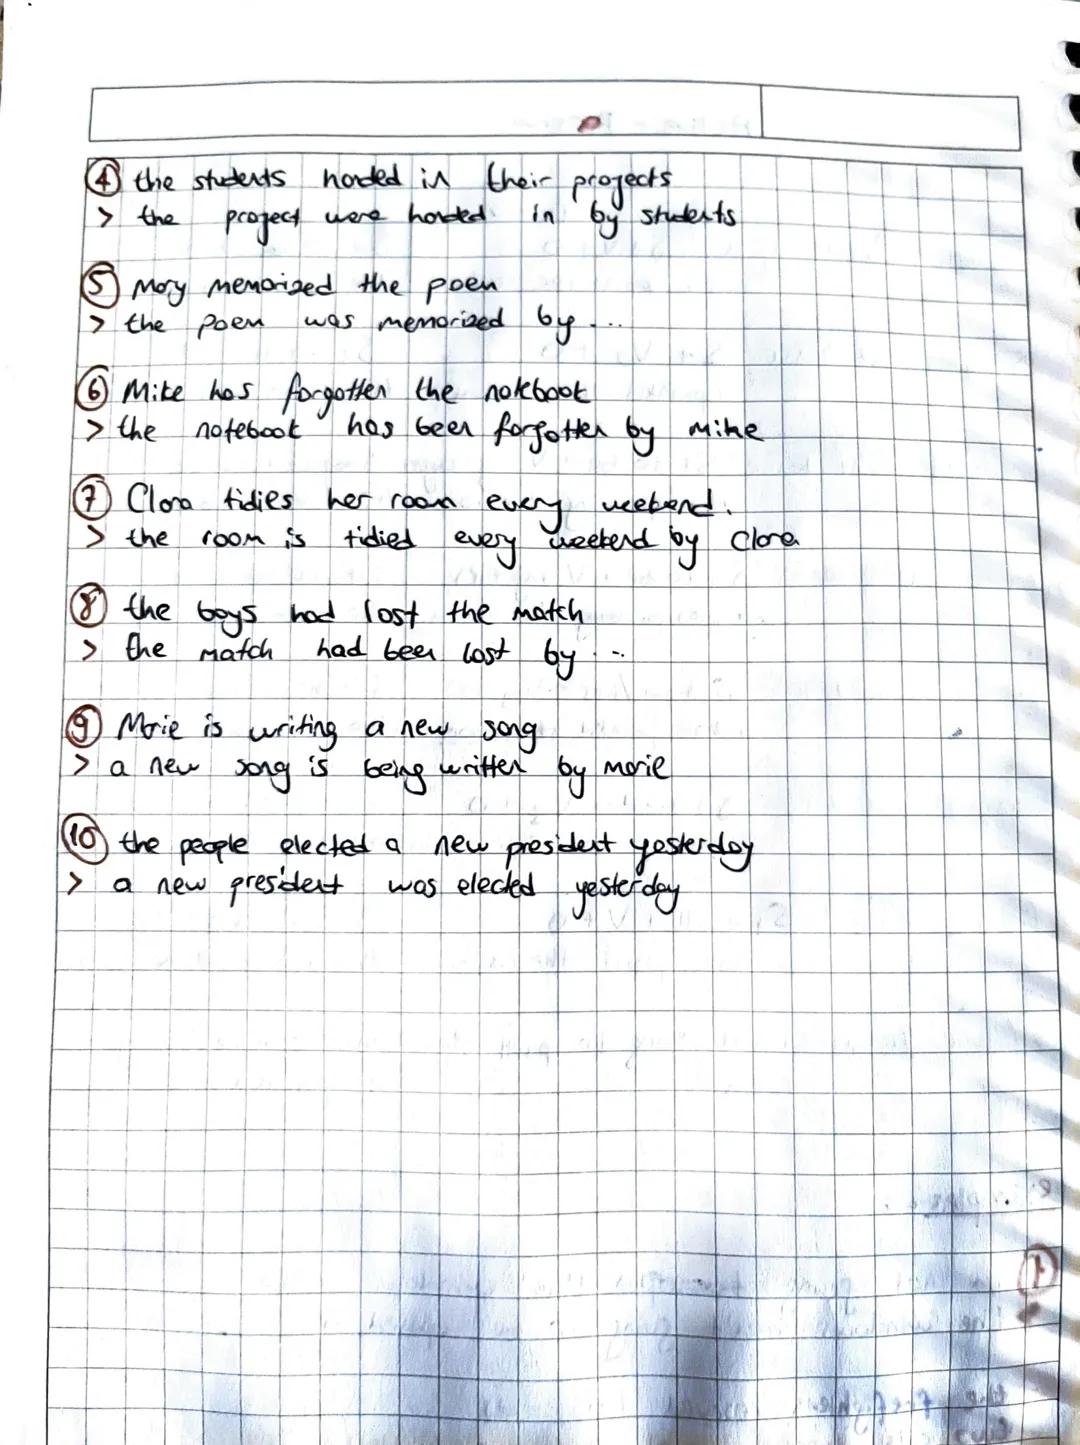 ④ the students handed in their projects
> the project were handed in by students
⑤ Mary memorized the poem
> the poem was memorized by ...
⑥ Mike has forgotten the notebook
> the notebook has been forgotten by Mike
⑦ Clara tidies her room every weekend.
> the room is tidied every weekend by Clara
⑧ the boys had lost the match
> the match had been lost by ...
⑨ Marie is writing a new song
> a new song is being written by marie
⑩ the people elected a new president yesterday
> a new president was elected yesterday